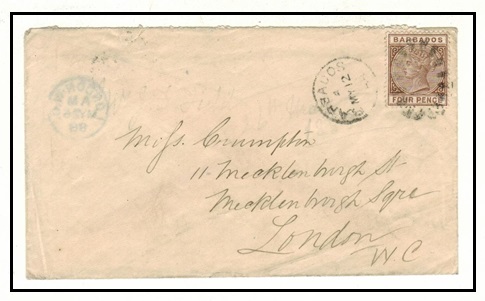 BARBADOS
FOUR PENCE
BARBADOS
MY 12
LONDON
88
Miss. Crumpton
11 Mecklenburgh St
Mecklenburgh Sqre
London
W C